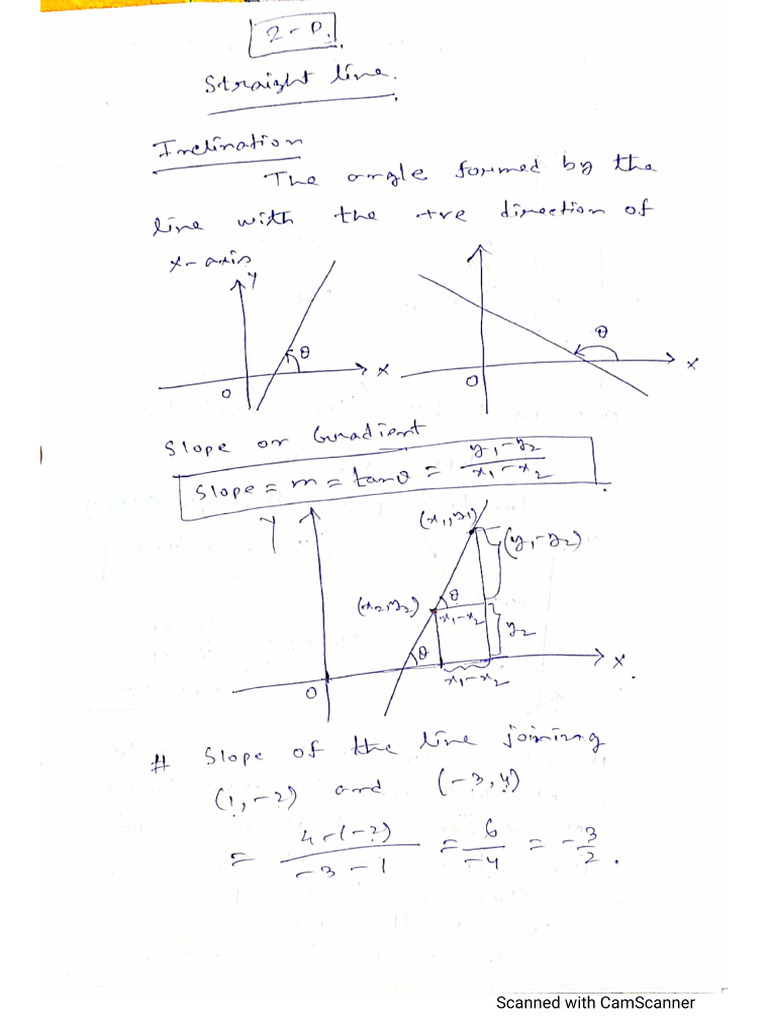 2-D.
Straight line.
Inclination
The angle formed by the
line with the +ve direction of
x-axis
Y
θ
X
O
θ
X
O
Slope or Gradient
Slope = m = tanθ = (y₁-y₂)/(x₁-x₂)
Y
(x₁,y₁)
(y₁-y₂)
(x₂,y₂)
θ
x₁-x₂
y₂
θ
X
O
x₁-x₂
# Slope of the line joining
(1,-2) and (-3,4)
= (4-(-2))/(-3-1) = 6/-4 = -3/2.
Scanned with CamScanner